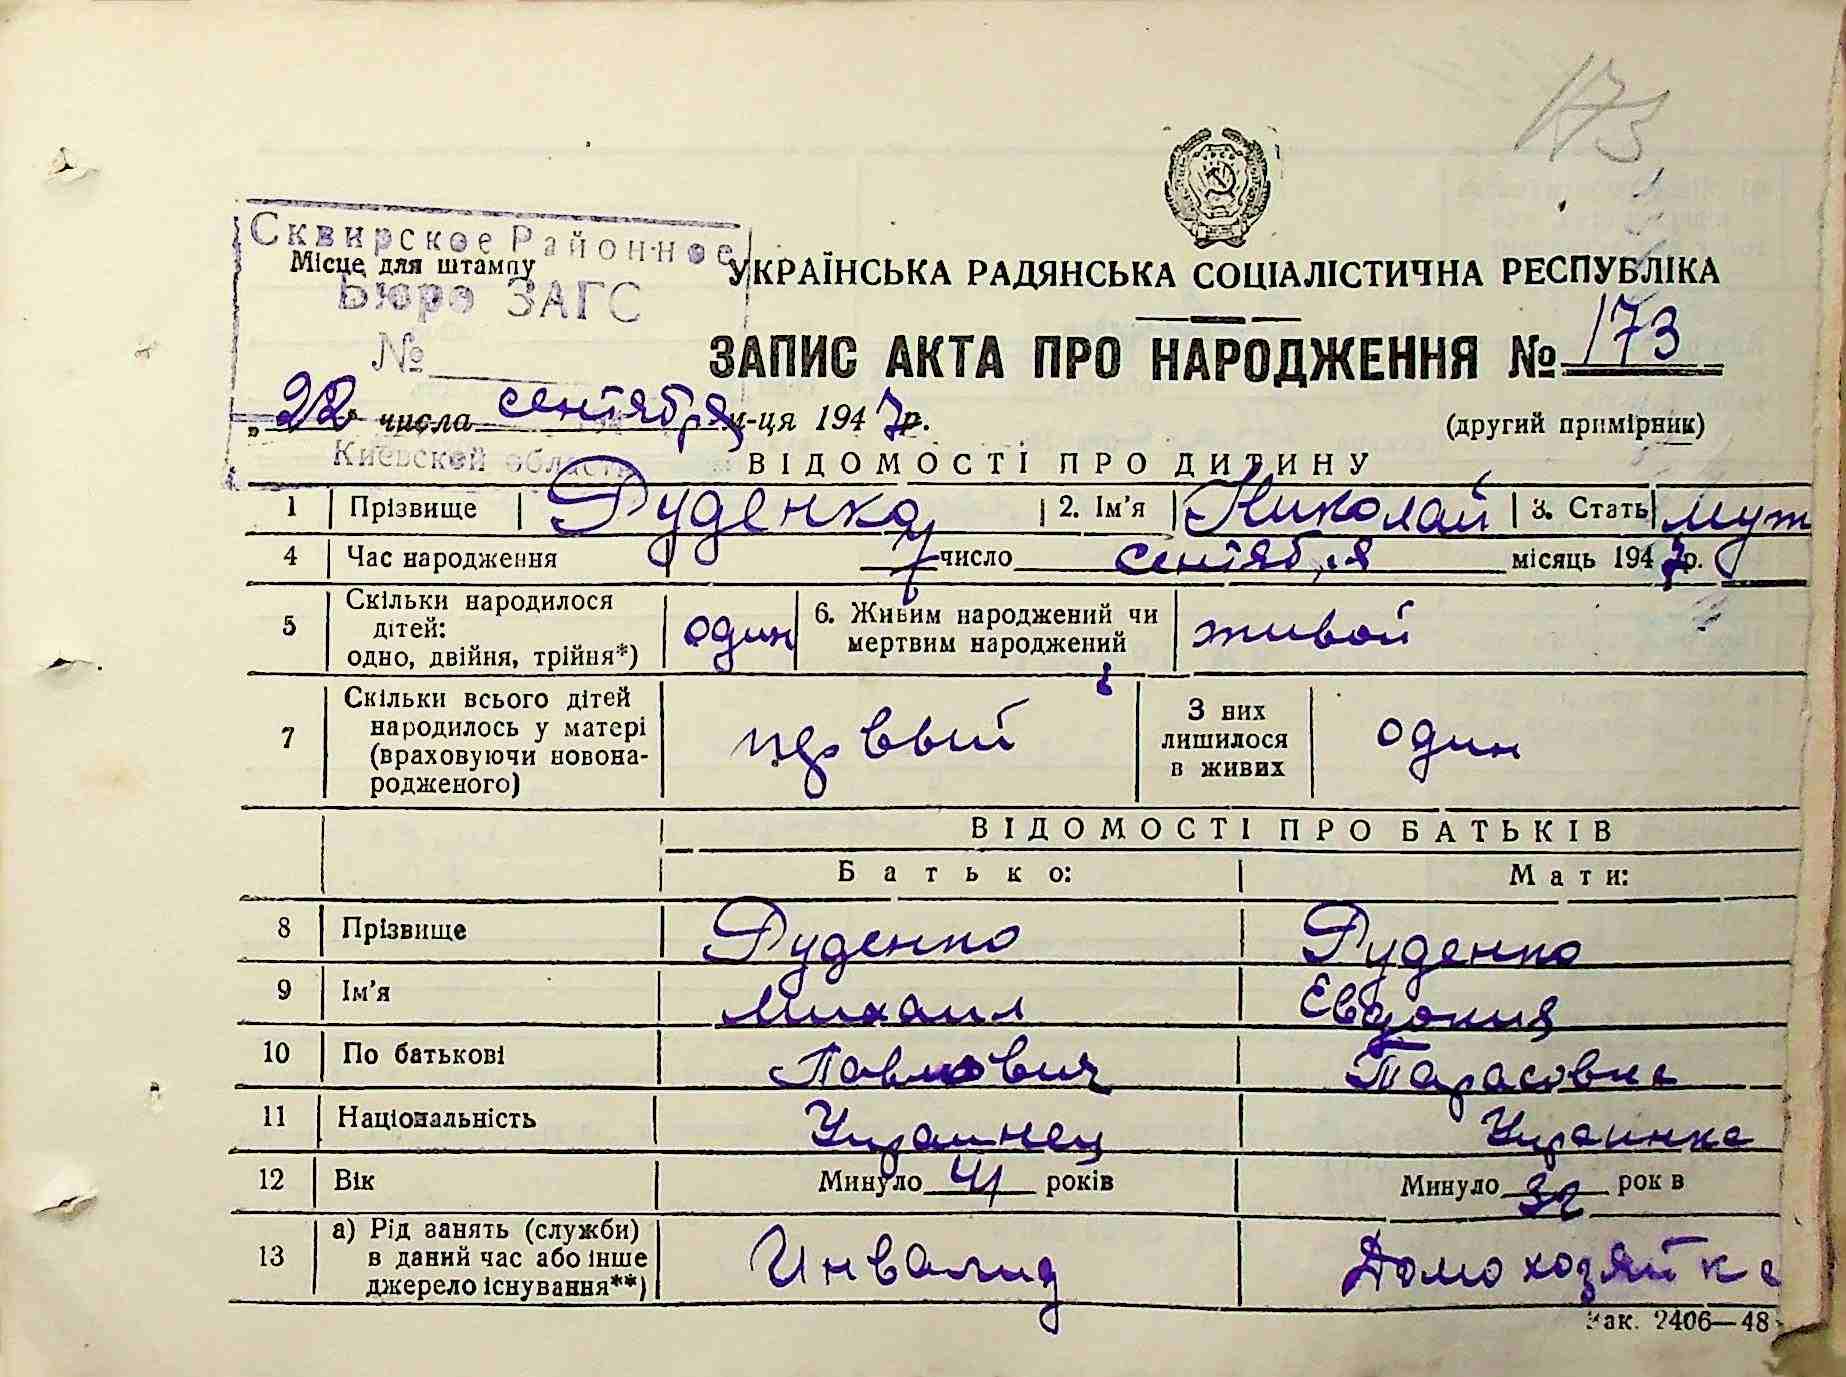 173
Сквирское Районное
Місце для штампу
Бюро ЗАГС
№
УКРАЇНСЬКА РАДЯНСЬКА СОЦІАЛІСТИЧНА РЕСПУБЛІКА
ЗАПИС АКТА ПРО НАРОДЖЕННЯ № 173
„22" числа сентября м-ця 1947 р.
(другий примірник)
Киевской области
ВІДОМОСТІ ПРО ДИТИНУ
1 Прізвище Руденко 2. Ім'я Николай 3. Стать муж
4 Час народження 7 число сентября місяць 1947 р.
5 Скільки народилося дітей: одно, двійня, трійня*) один 6. Живим народжений чи мертвим народжений живой
7 Скільки всього дітей народилось у матері (враховуючи новонародженого) первый З них лишилося в живих один
ВІДОМОСТІ ПРО БАТЬКІВ
Батько: Мати:
8 Прізвище Руденко Руденко
9 Ім'я Михаил Евдокия
10 По батькові Павлович Тарасовна
11 Національність Украинец Украинка
12 Вік Минуло 41 років Минуло 32 рок в
13 а) Рід занять (служби) в даний час або інше джерело існування**) Инвалид Домохозяйка
Зак. 2406—48